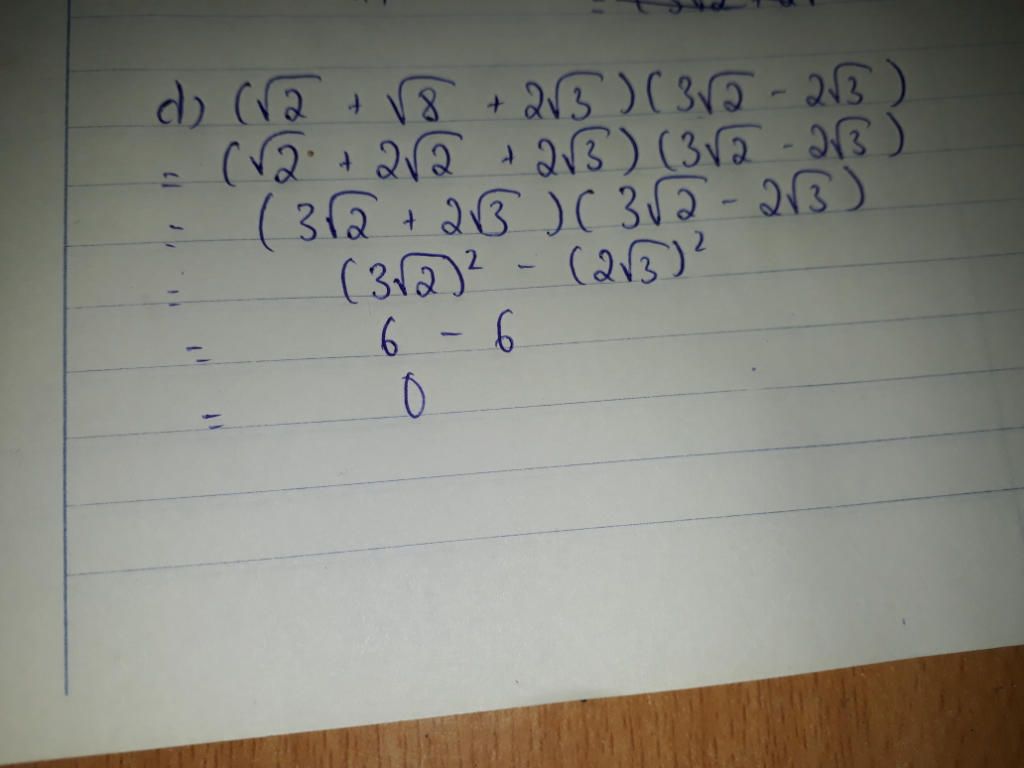 d) (√2 + √8 + 2√3)(3√2 - 2√3)
= (√2 + 2√2 + 2√3)(3√2 - 2√3)
= (3√2 + 2√3)(3√2 - 2√3)
= (3√2)² - (2√3)²
= 6 - 6
= 0